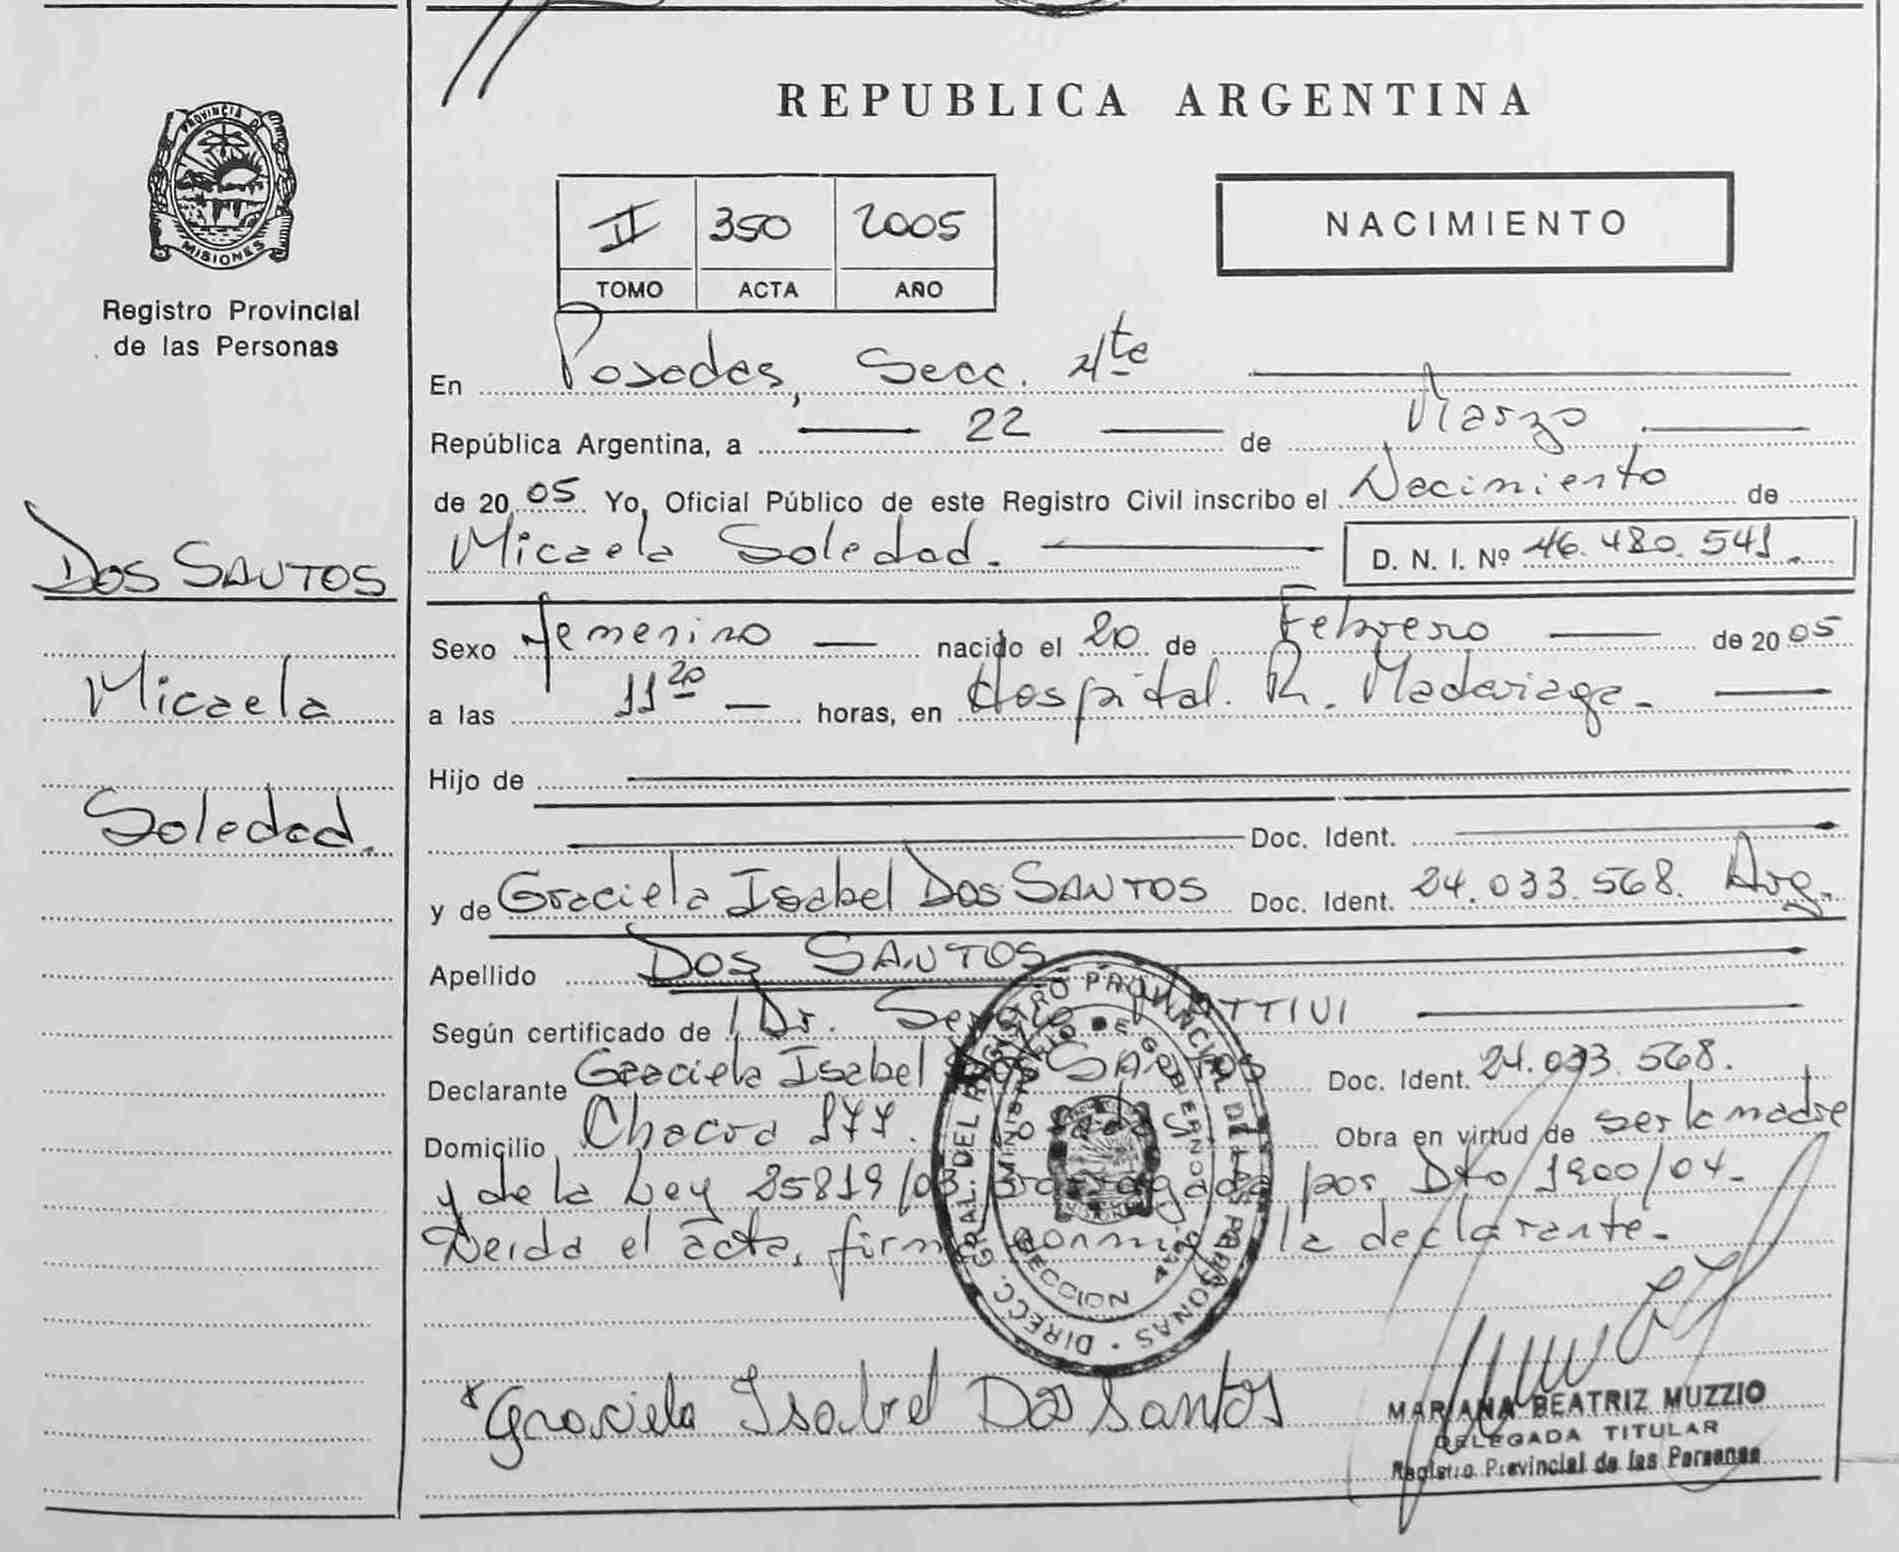 PROVINCIA DE
MISIONES
Registro Provincial
de las Personas
DOS SANTOS
Micaela
Soledad.
REPUBLICA ARGENTINA
II 350 2005
TOMO ACTA AÑO
NACIMIENTO
En Posadas, Secc. 4te
República Argentina, a 22 de Marzo
de 20 05 Yo, Oficial Público de este Registro Civil inscribo el Nacimiento de
Micaela Soledad. D. N. I. Nº 46.480.541.
Sexo Femenino nacido el 20 de Febrero de 20 05
a las 11 20 horas, en Hospital. R. Madariaga.
Hijo de
Doc. Ident.
y de Graciela Isabel DOS SANTOS Doc. Ident. 24.033.568. Arg.
Apellido DOS SANTOS
Según certificado de Dr. Sergio
Declarante Graciela Isabel DOS SANTOS Doc. Ident. 24.033.568.
Domicilio Chacra 177. Posadas Obra en virtud de ser la madre
y de la Ley 25819/03 prorrogada por Dto 1900/04-
Leida el acta, firma conmigo la declarante.
DIRECC. GRAL. DEL REGISTRO PROVINCIAL DE LAS PERSONAS
MINISTERIO DE GOBIERNO
SECCION 4ta
Graciela Isabel Dos Santos
MARIANA BEATRIZ MUZZIO
DELEGADA TITULAR
Registro Provincial de las Personas